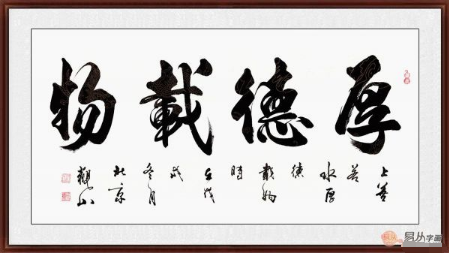 厚德載物
上善
若
水厚
德
載物
時
在戊
戌
冬月
北京
觀山
易从字画